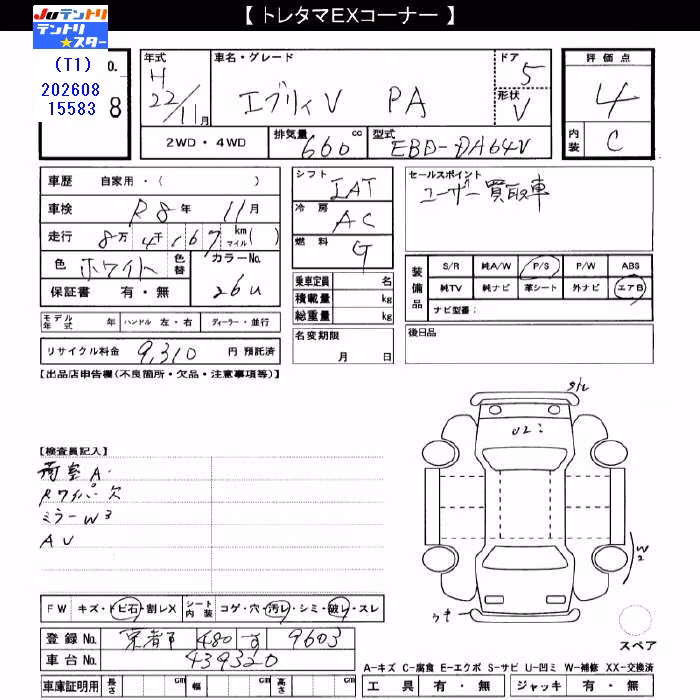 【 トレタマEXコーナー 】
JUテントリ
テントリ★スター
(T1)
202608
15583
O.
8
年式 H 22/11月
車名・グレード エブリィV PA
ドア 5
形状 V
評価点 4
内装 C
2WD・4WD
排気量 660 cc
型式 EBD-DA64V
車歴 自家用・( )
車検 R8年 11月
走行 8万4千167 km マイル( )
色 ホワイト 色替 カラーNo. 26U
保証書 有・無
シフト IAT
冷房 AC
燃料 G
乗車定員 名
積載量 kg
総重量 kg
名変期限
月 日
セールスポイント
ユーザー買取車
装備品
S/R 純A/W P/S P/W ABS
純TV 純ナビ 革シート 外ナビ エアB
ナビ型番:
後日品
モデル年式 年 ハンドル 左・右 ディーラー・並行
リサイクル料金 9,310 円 預託済
【出品店申告欄(不良箇所・欠品・注意事項等)】
【検査員記入】
荷室A・
Rワイパー欠
ミラーW3
AU
U2
W2
スペア
FW キズ・トビ石・割レX シート内装 コゲ・穴・汚レ・シミ・破レ・スレ
登録No. 京都市 480 す 9603
車台No. 439320
車庫証明用 長さ cm 幅 cm 高さ cm
A-キズ C-腐食 E-エクボ S-サビ U-凹ミ W-補修 XX-交換済
工具 有・無 ジャッキ 有・無